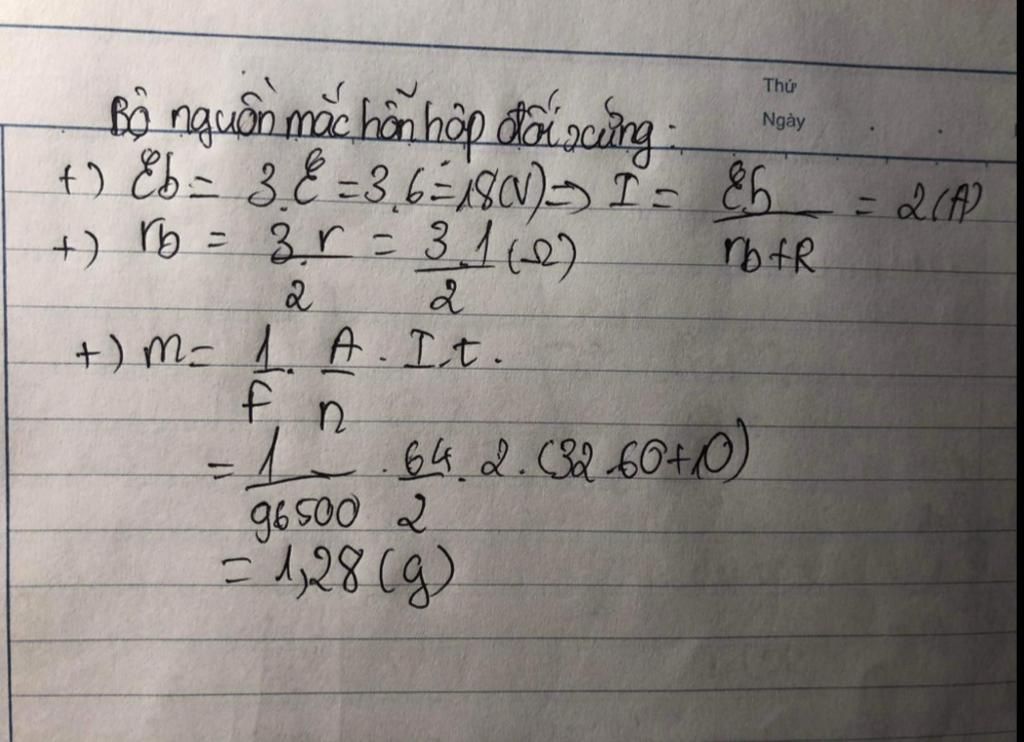 Thứ
Ngày
Bộ nguồn mắc hỗn hợp đối xứng:
+) Eb = 3.E = 3.6 = 18(V) => I = Eb / (rb+R) = 2(A)
+) rb = 3.r / 2 = 3.1 / 2 (Ω)
+) m = 1/F . A/n . I.t.
= 1/96500 . 64/2 . 2 . (32.60+10)
= 1,28 (g)